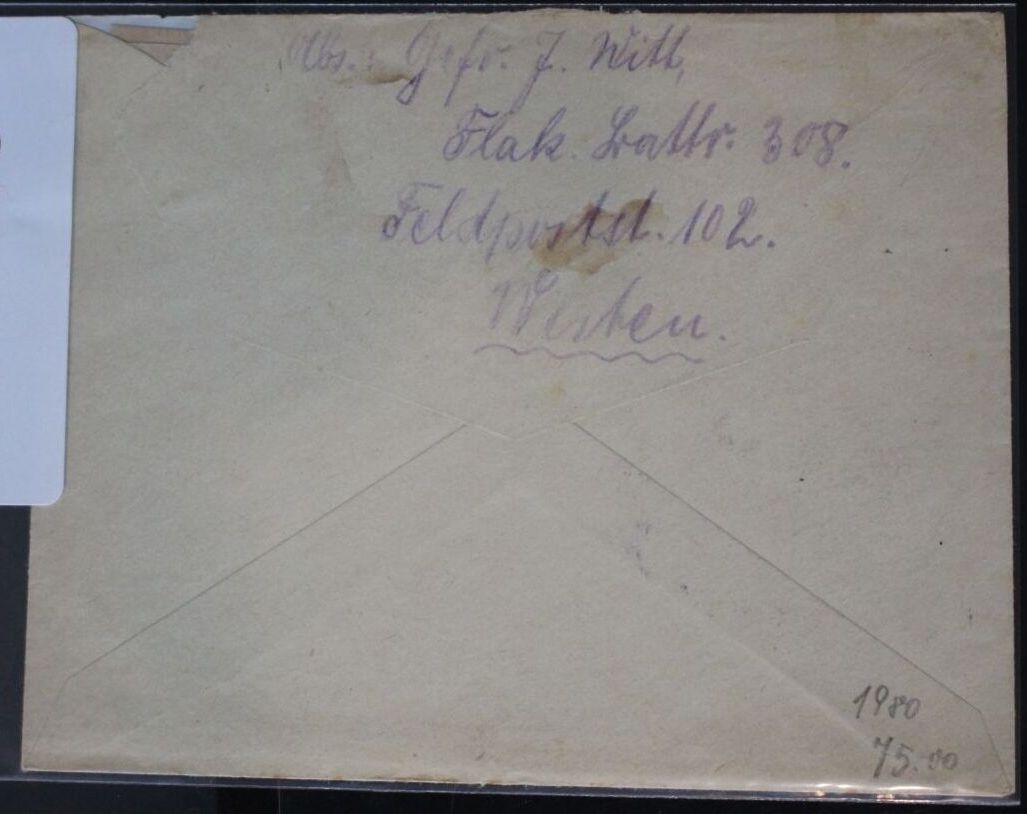 Abs.: Gefr. J. Witt,
Flak. Battr. 308.
Feldpostst. 102.
Westen.
1980
75.00